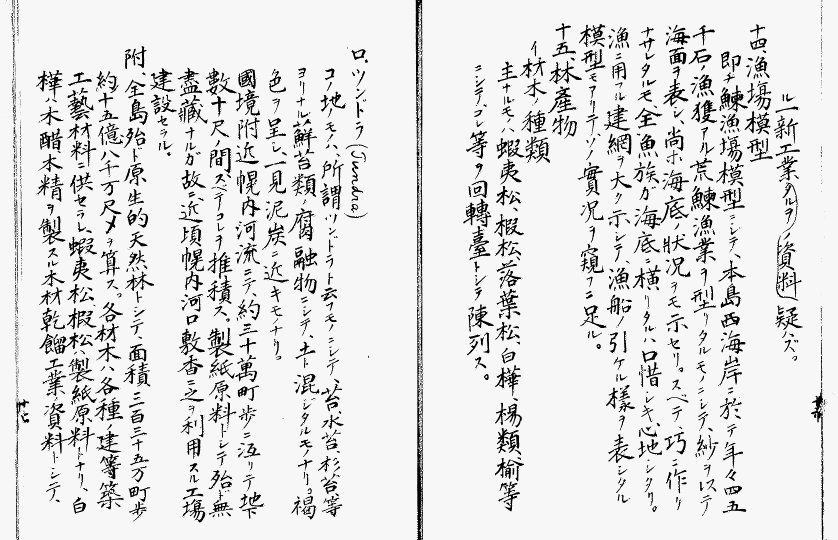 ル一新工業タルヲ資料疑ハズ。
十四、漁場模型
即チ鰊漁場模型ニシテ、本島西海岸ニ於テ年々四五
千石ノ漁獲アル荒鰊漁業ヲ型リタルモノニシテ、紗ヲ以ステ
海面ヲ表シ、尚ホ海底ノ状況ヲモ示セリ。スベテ巧ニ作リ
ナサレタルモ、全魚族ガ海底ニ横リタルハ口惜シキ心地シタリ。
漁ニ用フル建網ヲ大ク示シテ、漁船ノ引ケル樣ヲ表シタル
模型モアリテ、ソノ實況ヲ窺フニ足ル。
十五、林産物
イ 材木ノ種類
主ナルモノハ、蝦夷松、椴松、落葉松、白樺、楊類、楡等
ニシテ、コレ等ヲ回轉臺トシテ陳列ス。
ロ、ツンドラ(Tundra)
コノ地ノモノハ、所謂ツンドラト云フモノニシテ 苔、水苔、杉苔等
ヨリナル蘚苔類ノ腐融物ニシテ、土ト混シタルモノナリ。褐
色ヲ呈シ、一見泥炭ニ近キモノナリ。
國境附近幌内河流ニテ、約三十萬町歩ニ亙リテ地下
數十尺ノ間、スベテコレヲ推積ス。製紙原料トシテ殆ド無
盡藏ナルガ故ニ、近頃幌内河口敷香ニ之ヲ利用スル工場
建設セラル。
附、全島殆ド原生的天然林トシテ、面積三百三十五万町歩
約十五億八千万尺〆ヲ算ス。各材木ハ各種ノ建等築
工藝材料ニ供セラレ、蝦夷松、椴松ハ製紙原料トナリ、白
樺ハ木醋木精ヲ製スル木材乾餾工業ノ資料トシテ、